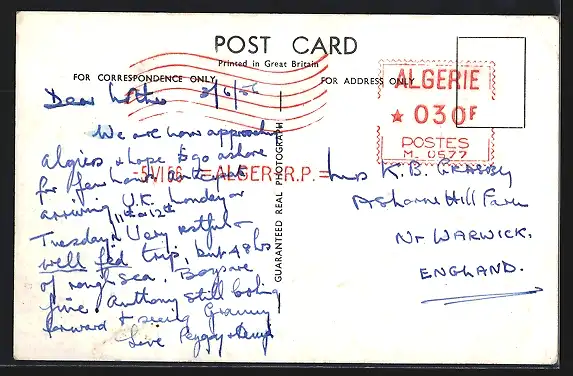 POST CARD
Printed in Great Britain
FOR CORRESPONDENCE ONLY
FOR ADDRESS ONLY
Dear Mother 3/6/56
We are now approaching
Algiers & hope to go ashore
for few hours. Anticipate
arriving U.K. Monday or
11th or 12th
Tuesday. Very restful &
well fed trip, but 48 hrs
of rough sea. Boys are
fine. Anthony still looking
forward to seeing Granny
Love Peggy &
GUARANTEED REAL PHOTOGRAPH
ALGERIE
★ 030F
POSTES
M. 0577
-5 VI 56 = ALGER R.P. =
Mrs K.B.
Ashorne Hill Farm
Nr. WARWICK.
ENGLAND.